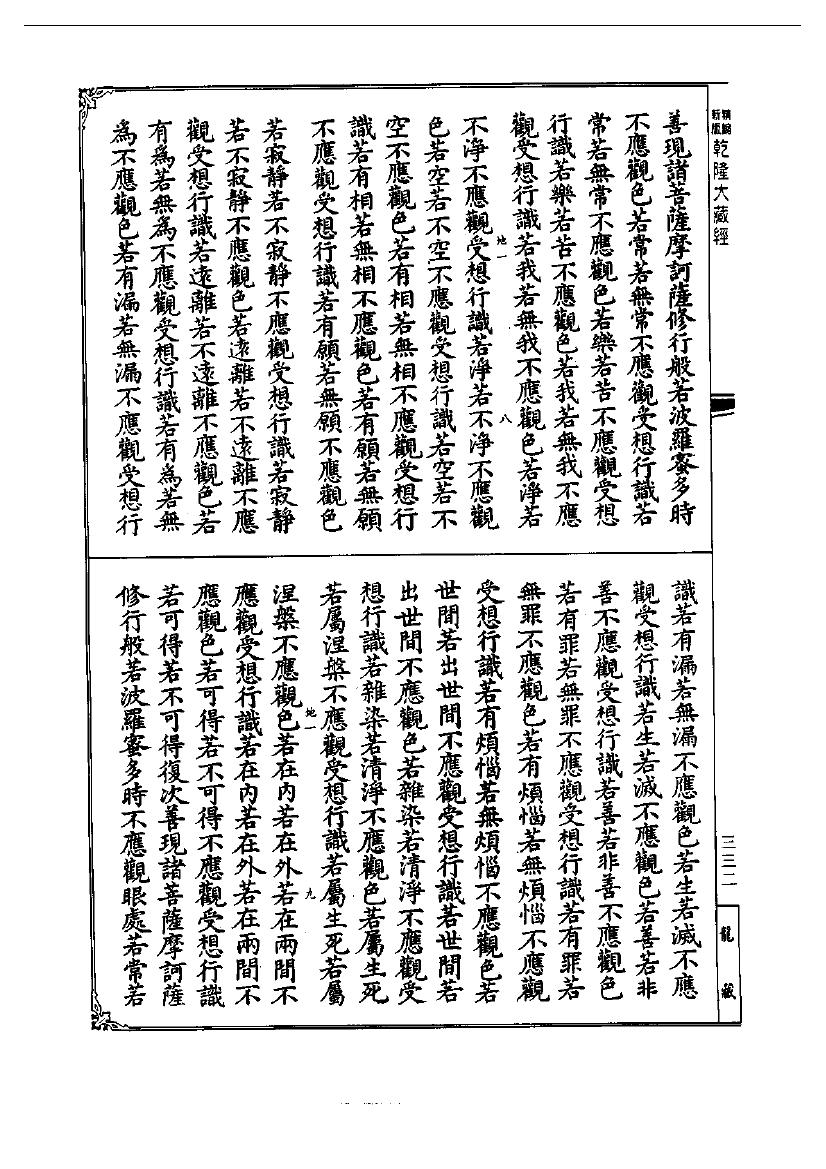 新編縮版乾隆大藏經
善現諸菩薩摩訶薩修行般若波羅蜜多時
不應觀色若常若無常不應觀受想行識若
常若無常不應觀色若樂若苦不應觀受想
行識若樂若苦不應觀色若我若無我不應
觀受想行識若我若無我不應觀色若淨若
地一 八
不淨不應觀受想行識若淨若不淨不應觀
色若空若不空不應觀受想行識若空若不
空不應觀色若有相若無相不應觀受想行
識若有相若無相不應觀色若有願若無願
不應觀受想行識若有願若無願不應觀色
若寂靜若不寂靜不應觀受想行識若寂靜
若不寂靜不應觀色若遠離若不遠離不應
觀受想行識若遠離若不遠離不應觀色若
有為若無為不應觀受想行識若有為若無
為不應觀色若有漏若無漏不應觀受想行
識若有漏若無漏不應觀色若生若滅不應
觀受想行識若生若滅不應觀色若善若非
善不應觀受想行識若善若非善不應觀色
若有罪若無罪不應觀受想行識若有罪若
無罪不應觀色若有煩惱若無煩惱不應觀
受想行識若有煩惱若無煩惱不應觀色若
世間若出世間不應觀受想行識若世間若
出世間不應觀色若雜染若清淨不應觀受
想行識若雜染若清淨不應觀色若屬生死
若屬涅槃不應觀受想行識若屬生死若屬
地一 九
涅槃不應觀色若在內若在外若在兩間不
應觀受想行識若在內若在外若在兩間不
應觀色若可得若不可得不應觀受想行識
若可得若不可得復次善現諸菩薩摩訶薩
修行般若波羅蜜多時不應觀眼處若常若
三三二
龍藏